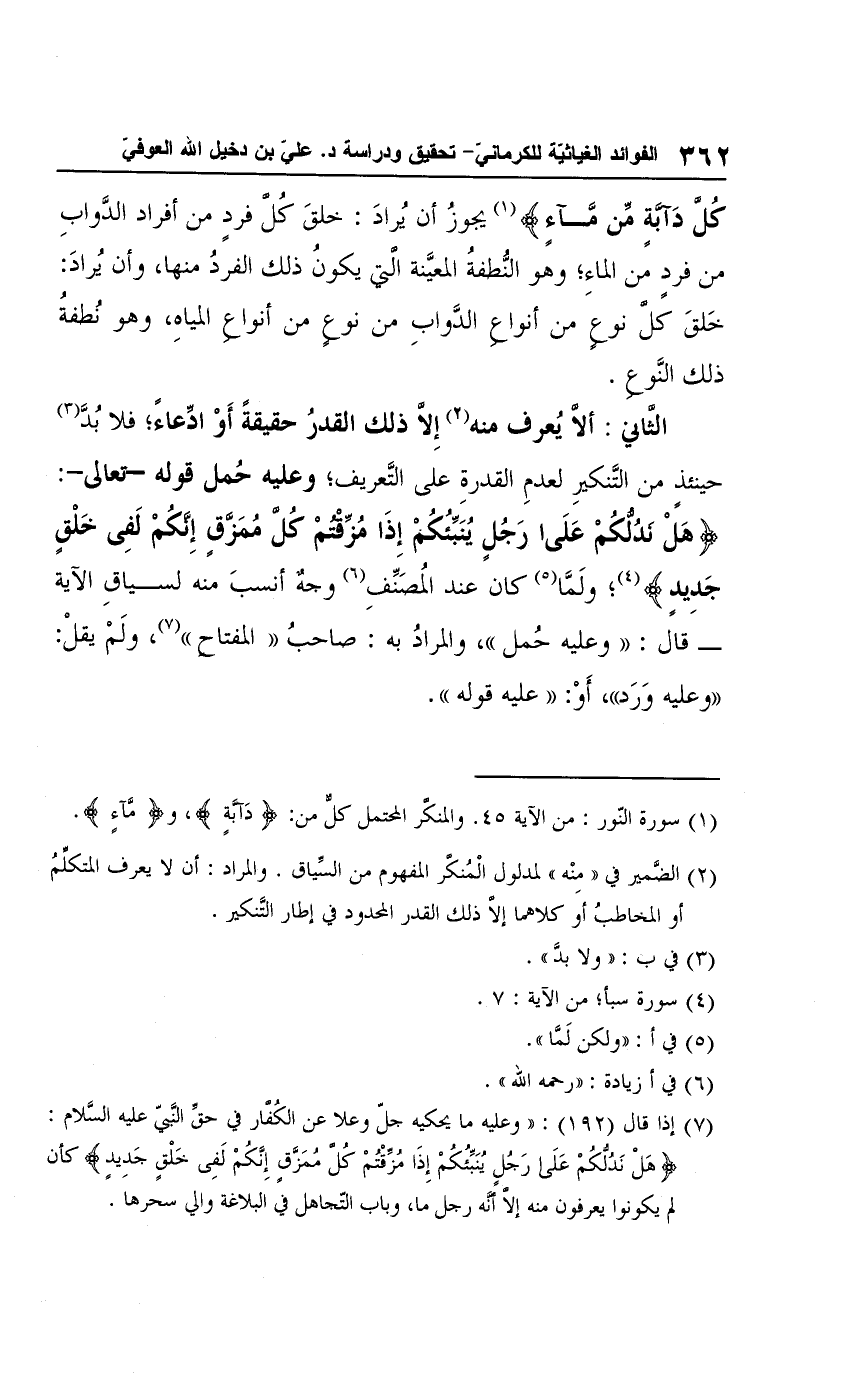 ٣٦٢ الفوائد الغياثيّة للكرمانيّ- تحقيق ودراسة د. عليّ بن دخيل الله العوفيّ
كُلَّ دَآبَّةٍ مِّن مَّــآءٍ ﴾(١) يجوزُ أن يُرادَ : خلقَ كُلَّ فردٍ من أفراد الدَّوابِ
من فردٍ من الماءِ؛ وهو النُّطفةُ المعيَّنة الَّتي يكونُ ذلك الفردُ منها، وأن يُرادَ:
خَلقَ كلَّ نوعٍ من أنواعِ الدَّوابِ من نوعٍ من أنواعِ المياهِ، وهو نُطفةُ
ذلك النَّوعِ .
الثَّاني : ألاَّ يُعرف منه(٢) إلاَّ ذلك القدرُ حقيقةً أَوْ ادِّعاءً؛ فلا بُدَّ(٣)
حينئذٍ من التَّنكيرِ لعدمِ القدرةِ على التَّعريف؛ وعليه حُمل قوله –تعالى–:
﴿ هَلْ نَدُلُّكُمْ عَلَىٰ رَجُلٍ يُنَبِّئُكُمْ إِذَا مُزِّقْتُمْ كُلَّ مُمَزَّقٍ إِنَّكُمْ لَفِى خَلْقٍ
جَدِيدٍ ﴾(٤)؛ ولَمَّا(٥) كان عند المُصَنِّفِ(٦) وجهٌ أنسبَ منه لســـياقِ الآية
ــ قال : « وعليه حُمل »، والمرادُ به : صاحبُ « المفتاح »(٧)، ولَمْ يقلْ:
«وعليه وَرَد»، أَوْ: « عليه قوله ».
(١) سورة النّور : من الآية ٤٥. والمنكّر المحتمل كلٌّ من: ﴿ دَآبَّةٍ ﴾، و﴿ مَّآءٍ ﴾.
(٢) الضَّمير في « مِنْه » لمدلول الْمُنكّر المفهوم من السِّياق . والمراد : أن لا يعرف المتكلِّمُ
أو المخاطبُ أو كلاهما إلاَّ ذلك القدر المحدود في إطار التَّنكير .
(٣) في ب : « ولا بدَّ» .
(٤) سورة سبأ؛ من الآية : ٧ .
(٥) في أ : «ولكن لَمَّا».
(٦) في أ زيادة : «رحمه الله» .
(٧) إذا قال (١٩٢) : « وعليه ما يحكيه جلّ وعلا عن الكُفَّار في حقِّ النَّبيّ عليه السَّلام :
﴿ هَلْ نَدُلُّكُمْ عَلَىٰ رَجُلٍ يُنَبِّئُكُمْ إِذَا مُزِّقْتُمْ كُلَّ مُمَزَّقٍ إِنَّكُمْ لَفِى خَلْقٍ جَدِيدٍ﴾ كأن
لم يكونوا يعرفون منه إلاَّ أنَّه رجل ما، وباب التّجاهل في البلاغة والي سحرها .